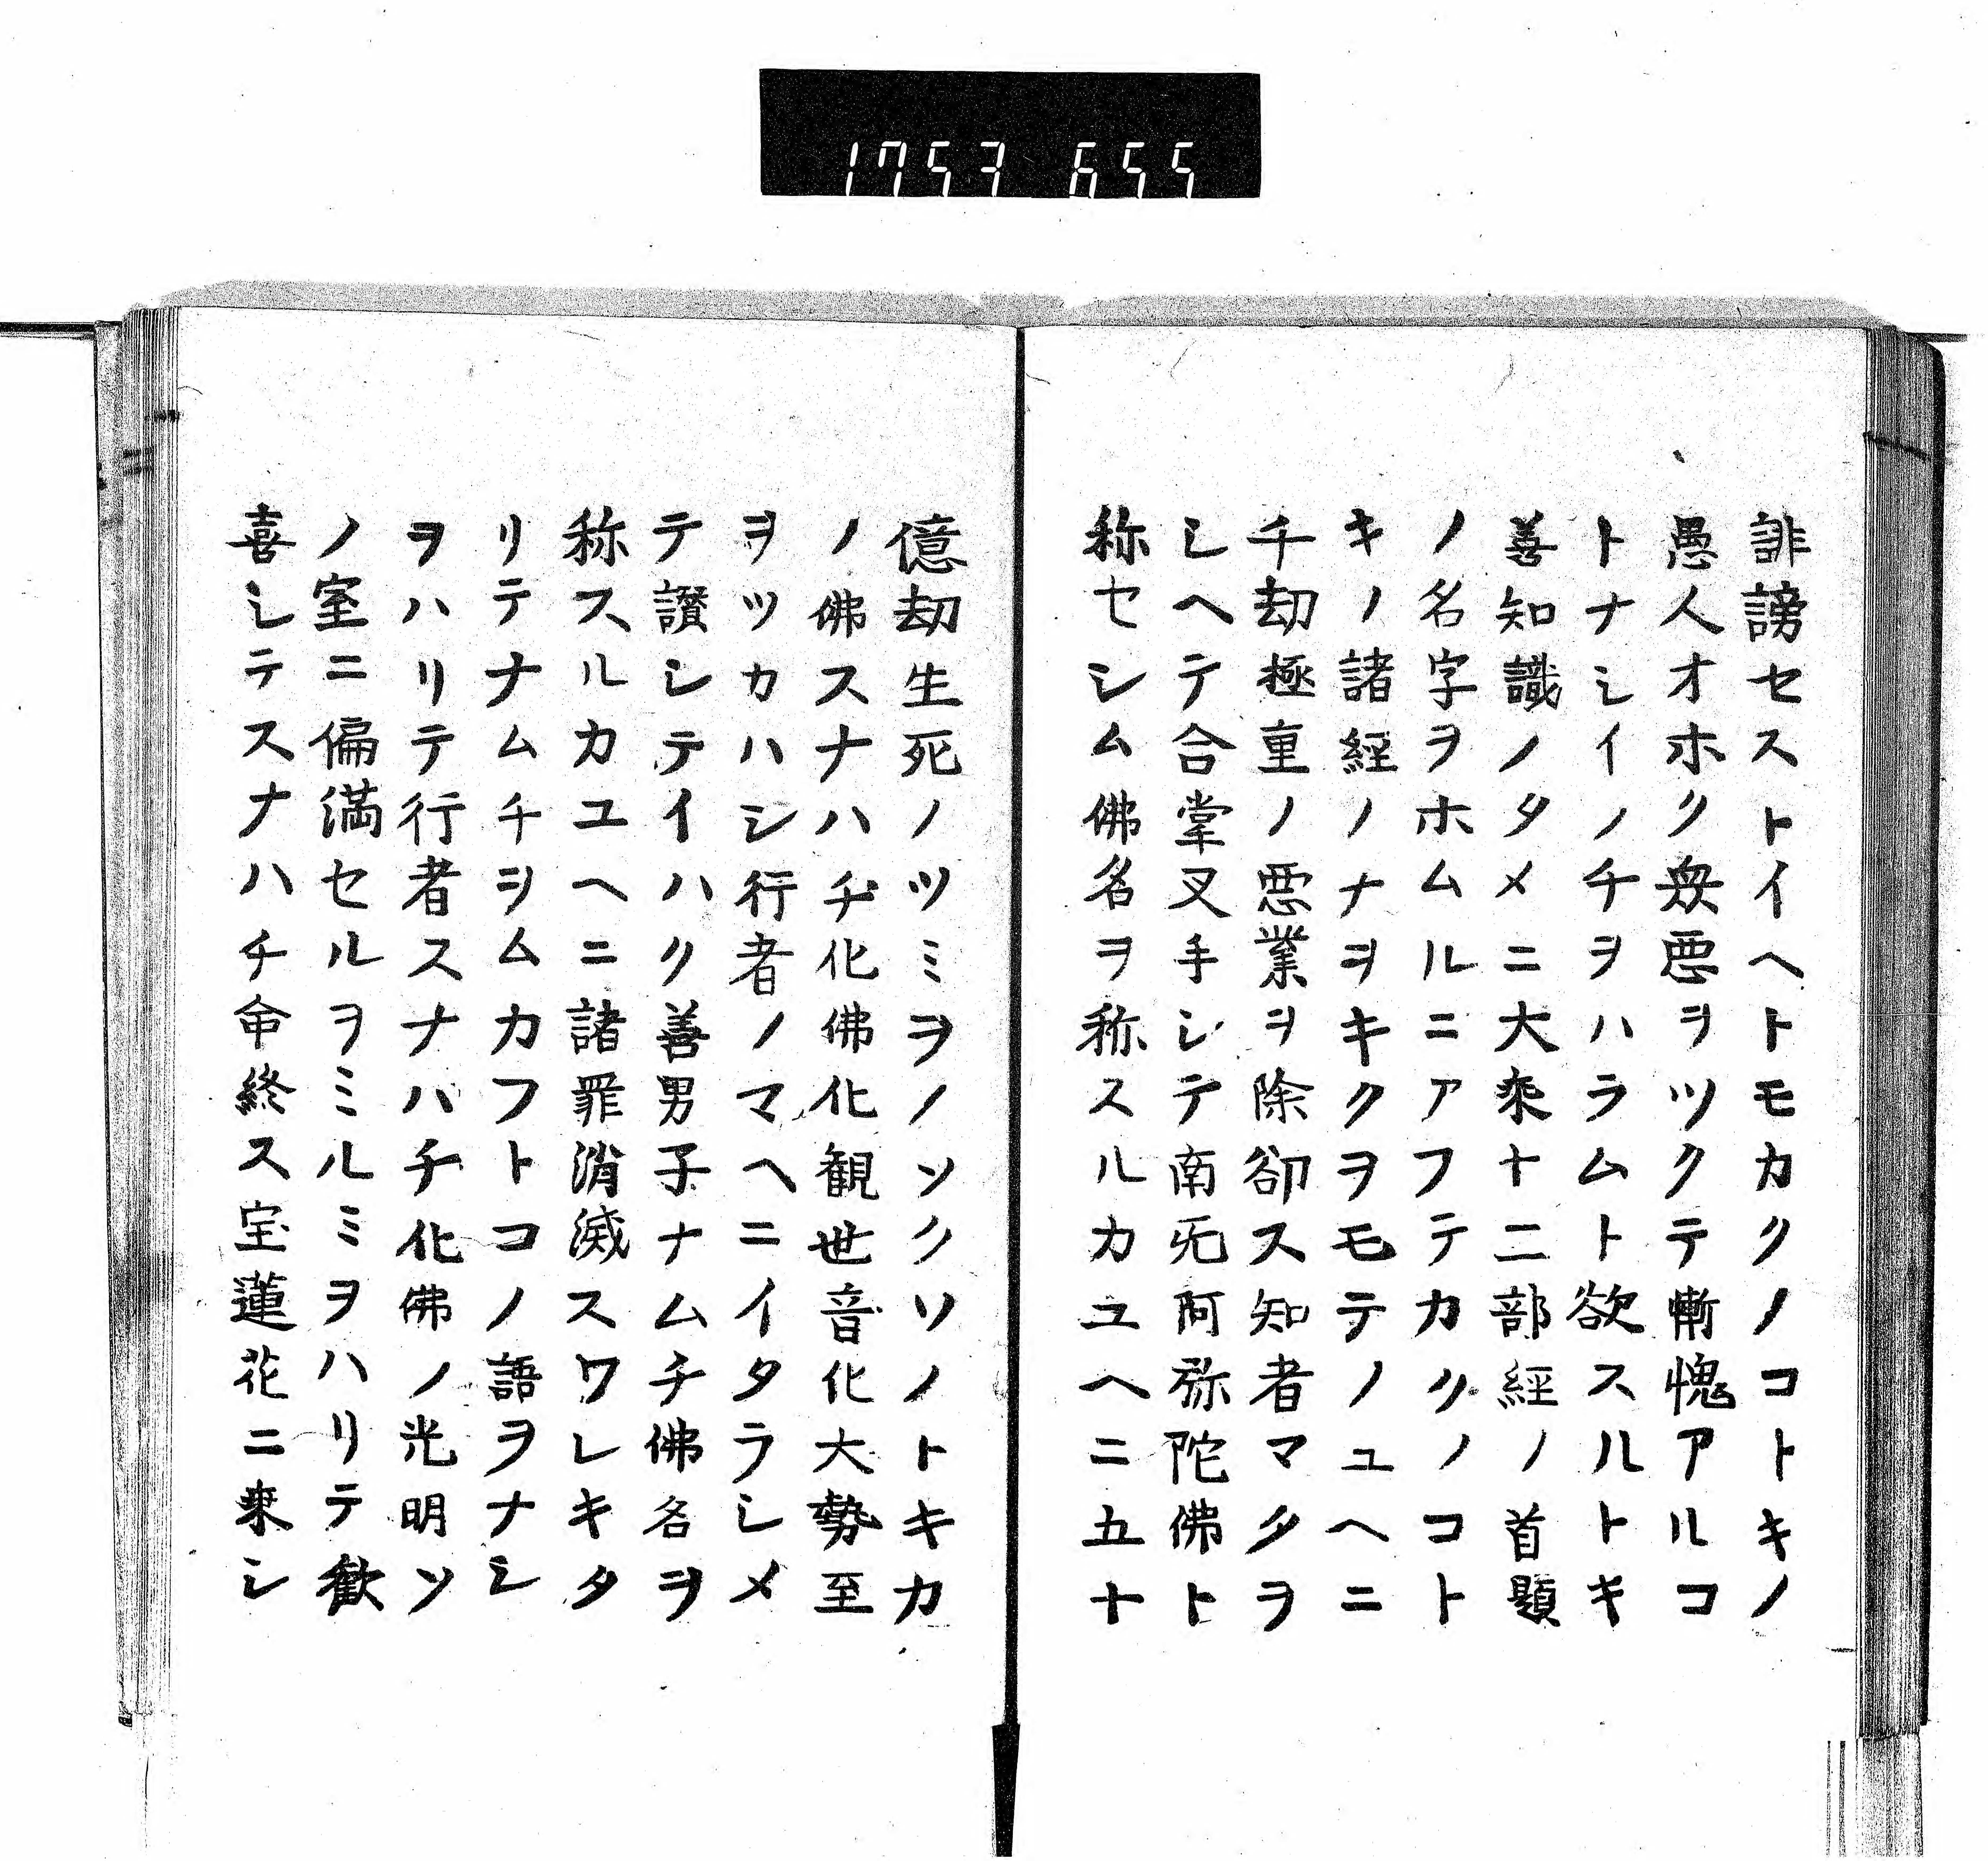 1753 655
誹謗セストイヘトモカクノコトキノ
愚人オホク衆悪ヲツクテ慚愧アルコ
トナシイノチヲハラムト欲スルトキ
善知識ノタメニ大乗十二部経ノ首題
ノ名字ヲホムルニアフテカクノコト
キノ諸経ノナヲキクヲモテノユヘニ
千劫極重ノ悪業ヲ除卻ス知者マタヲ
シヘテ合掌叉手シテ南旡阿弥陀佛ト
称セシム佛名ヲ称スルカユヘニ五十
億劫生死ノツミヲノソクソノトキカ
ノ佛スナハチ化佛化観世音化大勢至
ヲツカハシ行者ノマヘニイタラシメ
テ讃シテイハク善男子ナムチ佛名ヲ
称スルカユヘニ諸罪消滅スワレキタ
リテナムチヲムカフトコノ語ヲナシ
ヲハリテ行者スナハチ化佛ノ光明ソ
ノ室ニ偏満セルヲミルミヲハリテ歓
喜シテスナハチ命終ス宝蓮花ニ乗シ